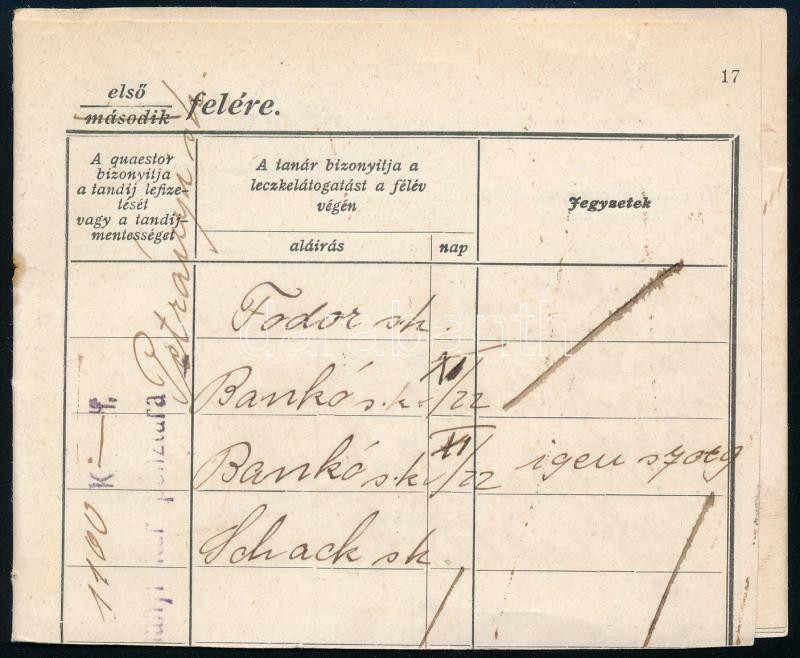 17
első
második felére.
A quaestor
bizonyitja
a tandij lefize-
tését
vagy a tandij-
mentességet
A tanár bizonyitja a
leczkelátogatást a félév
végén
aláirás
nap
Jegyzetek
Fodor sk.
Bankó s.k. XI/22
Bankó s.k. XI/22 igen szorg
Schack sk.
1100 K — f.
pénztára
darabanth